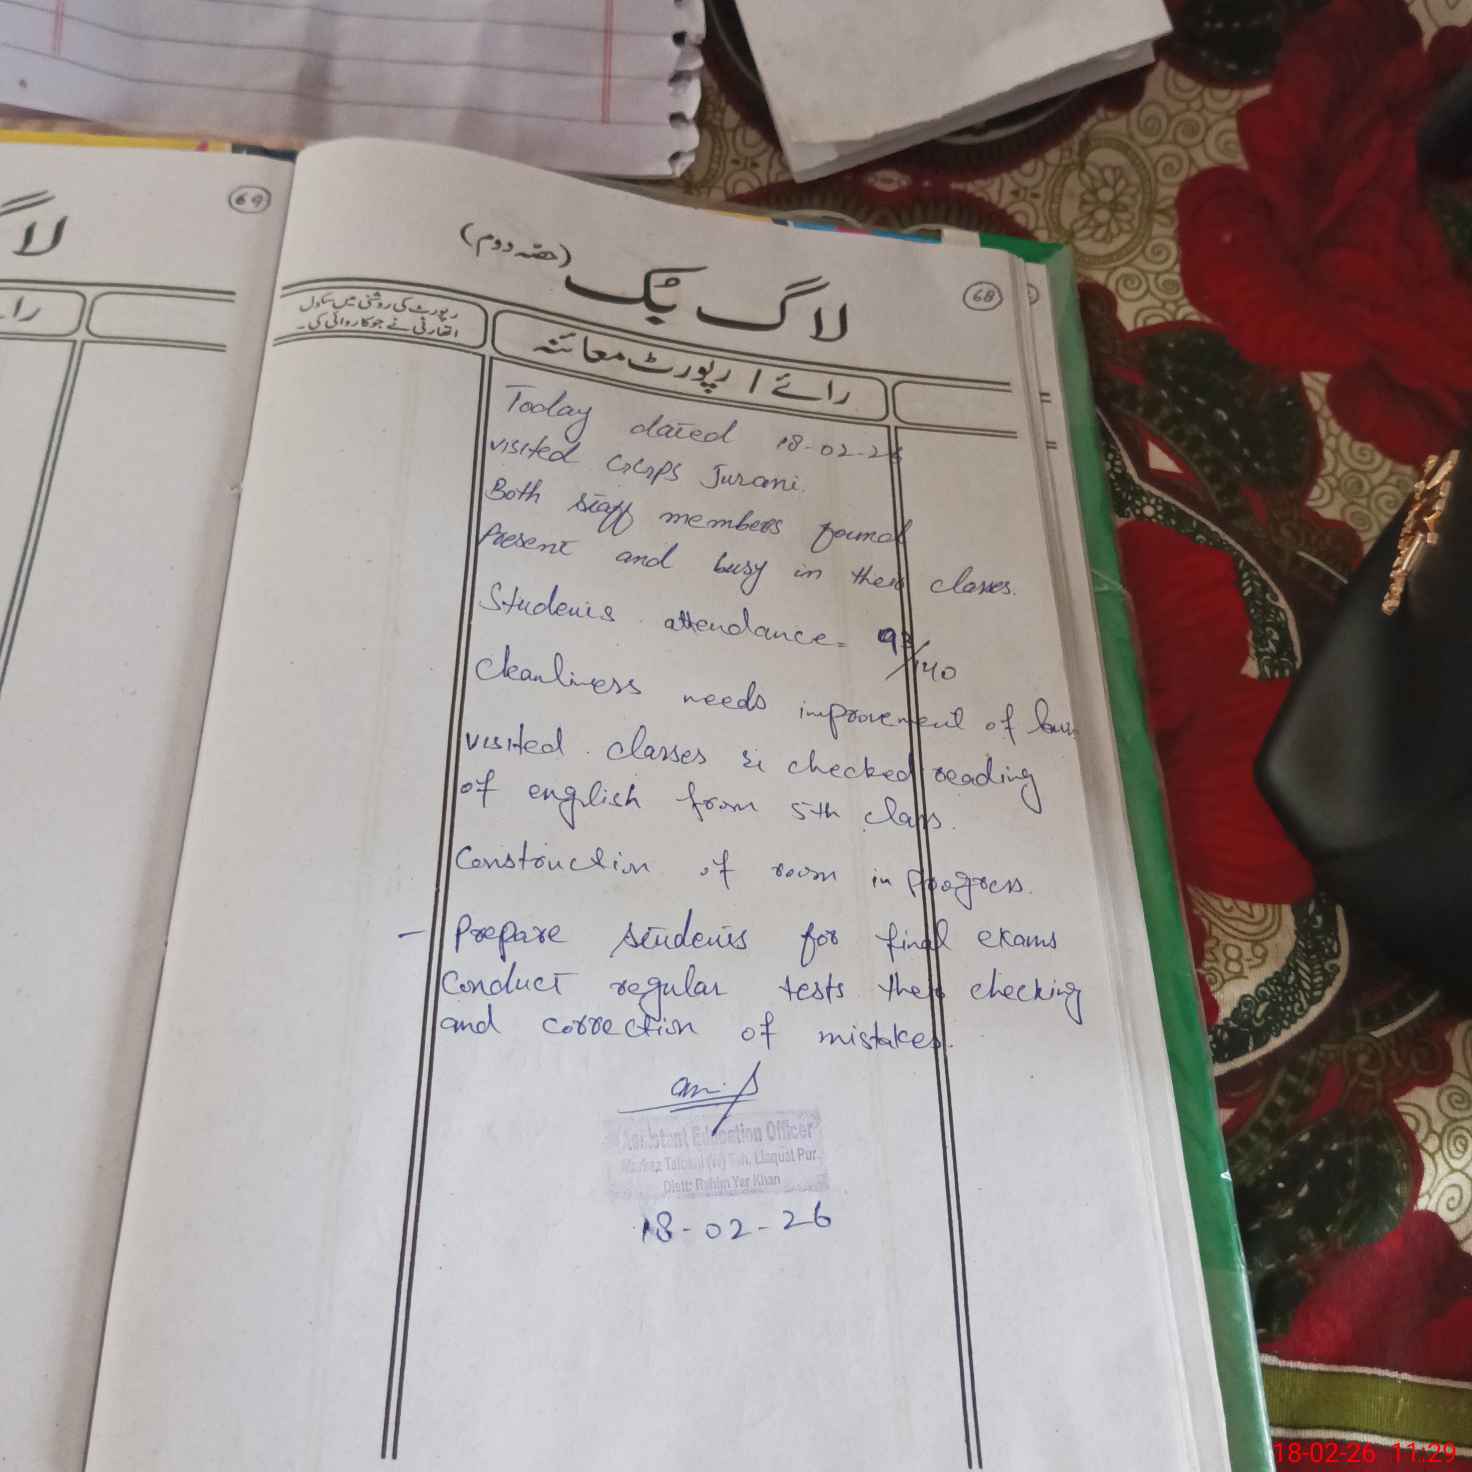 لا
69
را
لاگ بُک (حصّہ دوم)
68
رپورٹ کی روشنی میں سکول
اتھارٹی نے جو کاروائی کی۔
رائے / رپورٹ معائنہ
Today dated 18-02-26
visited GGPS Jurani.
Both staff members found
Present and busy in their classes.
Students attendance = 93/140
Cleanliness needs improvement of
visited classes & checked reading
of english from 5th class.
Construction of room in progress.
- Prepare students for final exams
Conduct regular tests their checking
and correction of mistakes.
Assistant Education Officer
Markaz (W) Teh. Liaquat Pur.
Distt: Rahim Yar Khan
18-02-26
18-02-26 11:29